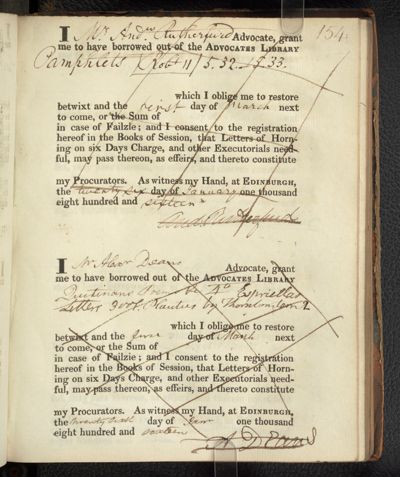 154
I Mr. Andw. Rutherfurd Advocate, grant
me to have borrowed out of the ADVOCATES LIBRARY
Pamphlets 11/5.32.
which I oblige me to restore
betwixt and the first day of March next
to come, or the Sum of
in case of Failzie; and I consent to the registration
hereof in the Books of Session, that Letters of Horn-
ing on six Days Charge, and other Executorials need-
ful, may pass thereon, as effeirs, and thereto constitute
my Procurators. As witness my Hand, at EDINBURGH,
the twenty six day of January one thousand
eight hundred and sixteen
Andw Rutherfurd
I Mr. Alexr Deans Advocate, grant
me to have borrowed out of the ADVOCATES LIBRARY
4to Espriellas
Letters 3 vols. Plautus by Thornton
which I oblige me to restore
betwixt and the first day of March next
to come, or the Sum of
in case of Failzie; and I consent to the registration
hereof in the Books of Session, that Letters of Horn-
ing on six Days Charge, and other Executorials need-
ful, may pass thereon, as effeirs, and thereto constitute
my Procurators. As witness my Hand, at EDINBURGH,
the twenty sixth day of Jany one thousand
eight hundred and sixteen
A Deans